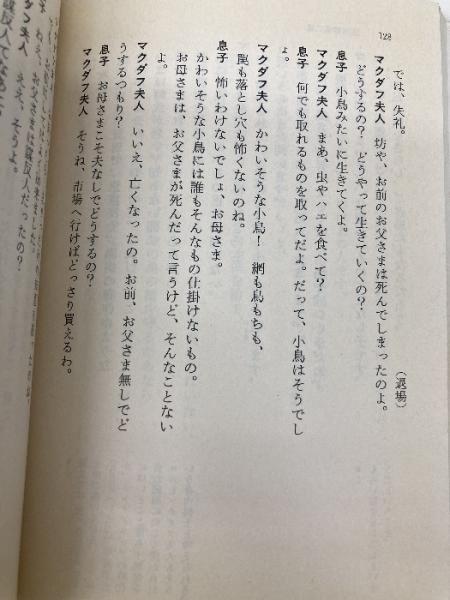 128
では、失礼。
（退場）
マクダフ夫人　坊や、お前のお父さまは死んでしまったのよ。
どうするの？　どうやって生きていくの？
息子　小鳥みたいに生きてくよ。
マクダフ夫人　まあ、虫やハエを食べて？
息子　何でも取れるものを取ってだよ。だって、小鳥はそうでし
ょ。
マクダフ夫人　かわいそうな小鳥！　網も鳥もちも、
罠も落とし穴も怖くないのね。
息子　怖いわけないでしょ、お母さま。
かわいそうな小鳥には誰もそんなもの仕掛けないもの。
お母さまは、お父さまが死んだって言うけど、そんなことない
よ。
マクダフ夫人　いいえ、亡くなったの。お前、お父さま無しでど
うするつもり？
息子　お母さまこそ夫なしでどうするの？
マクダフ夫人　そうね、市場へ行けばどっさり買えるわ。
ねえ、お父さまは謀反人だったの？
マクダフ夫人　ええ、そうよ。